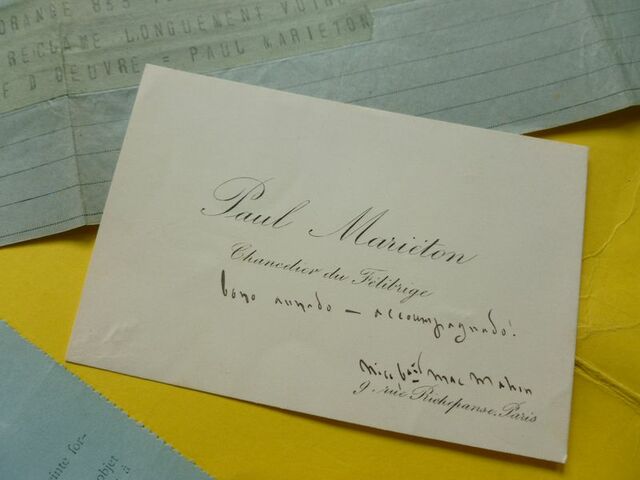 ORANGE
RECLAME LONGUEMENT VOTRE
F D OEUVRE = PAUL MARIETON
Paul Mariéton
Chancelier du Félibrige
bono annado — accoumpagnado!
Mac Mahon
9, rue Richepanse, Paris
inte for-
objet
à